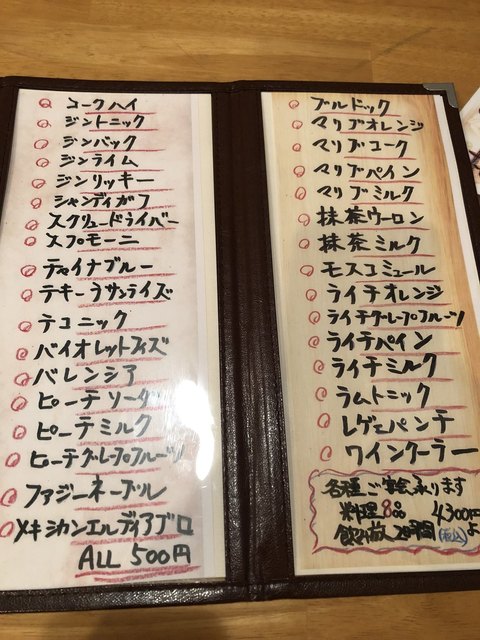 コークハイ
ジントニック
ジンバック
ジンライム
ジンリッキー
シャンディガフ
スクリュードライバー
スプモーニ
チャイナブルー
テキーラサンライズ
テコニック
バイオレットフィズ
バレンシア
ピーチソーダ
ピーチミルク
ピーチグレープフルーツ
ファジーネーブル
メキシカンエルディアブロ
ALL 500円
ブルドック
マリブオレンジ
マリブコーク
マリブパイン
マリブミルク
抹茶ウーロン
抹茶ミルク
モスコミュール
ライチオレンジ
ライチグレープフルーツ
ライチパイン
ライチミルク
ラムトニック
レゲェパンチ
ワインクーラー
各種ご宴会承ります
料理8品 4300円
飲み放 2時間 (税込) より